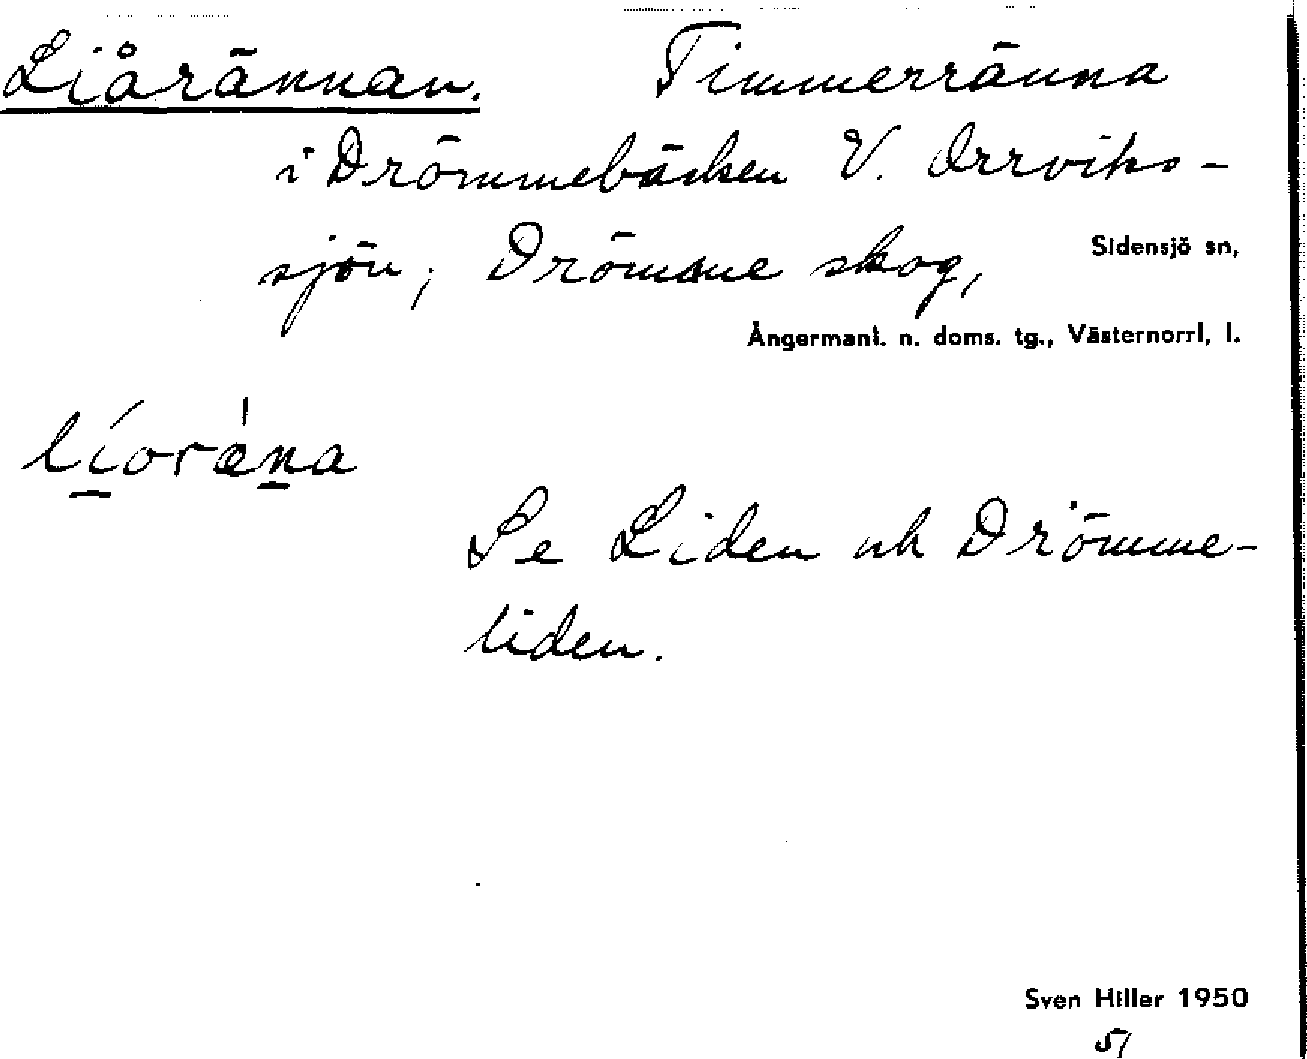 Liårännan. Timmerränna
i Drömmebäcken V. Orrviks-
sjön, Drömme skog, Sidensjö sn,
Ångermanl. n. doms. tg., Västernorrl. l.
líoräǹa
Se Liden och Drömme-
liden.
Sven Hiller 1950
51